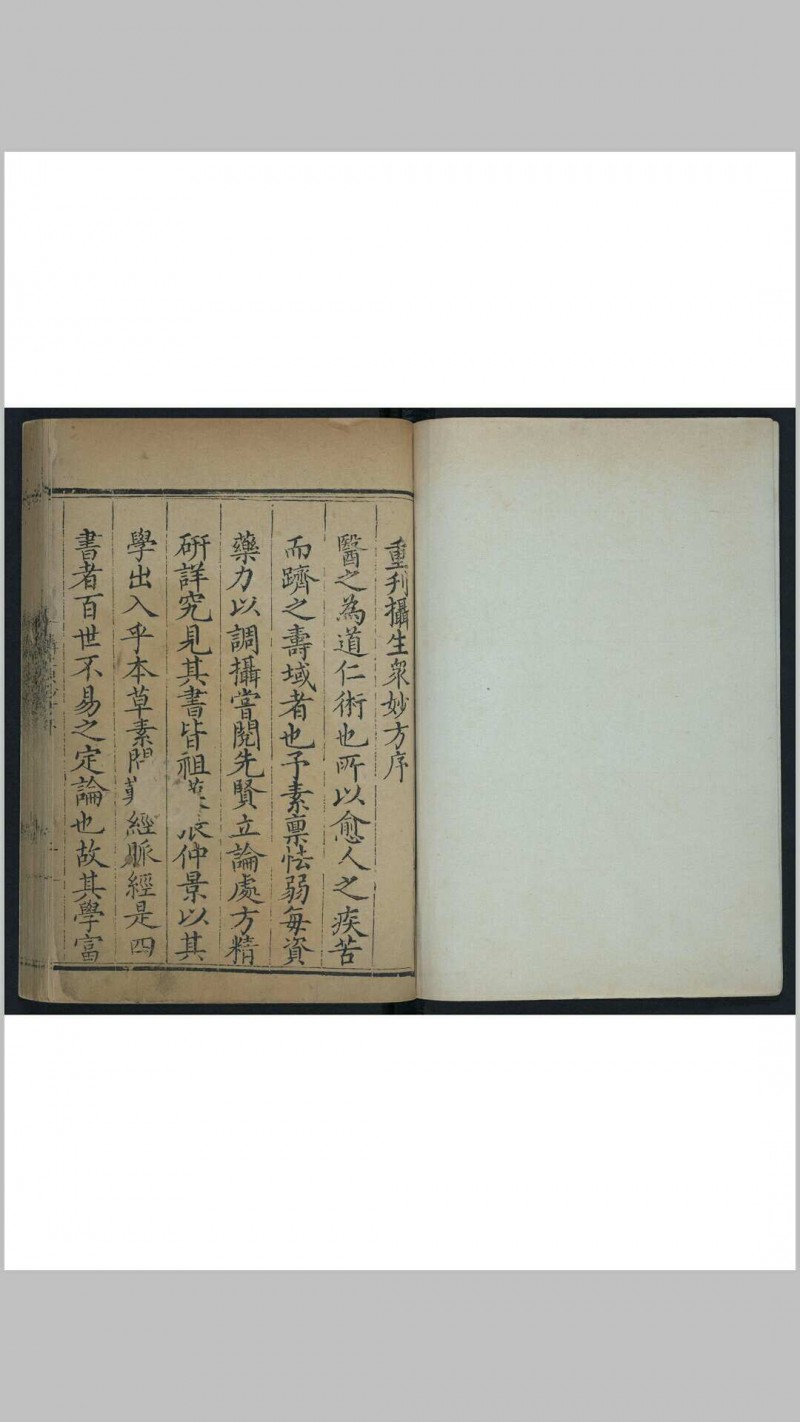 重刋攝生衆妙方序
醫之為道仁術也所以愈人之疾苦
而躋之壽域者也予素禀怯弱每資
藥力以調攝嘗閱先賢立論處方精
研詳究見其書皆祖仲景以其
學出入乎本草素問經脈經是四
書者百世不易之定論也故其學富